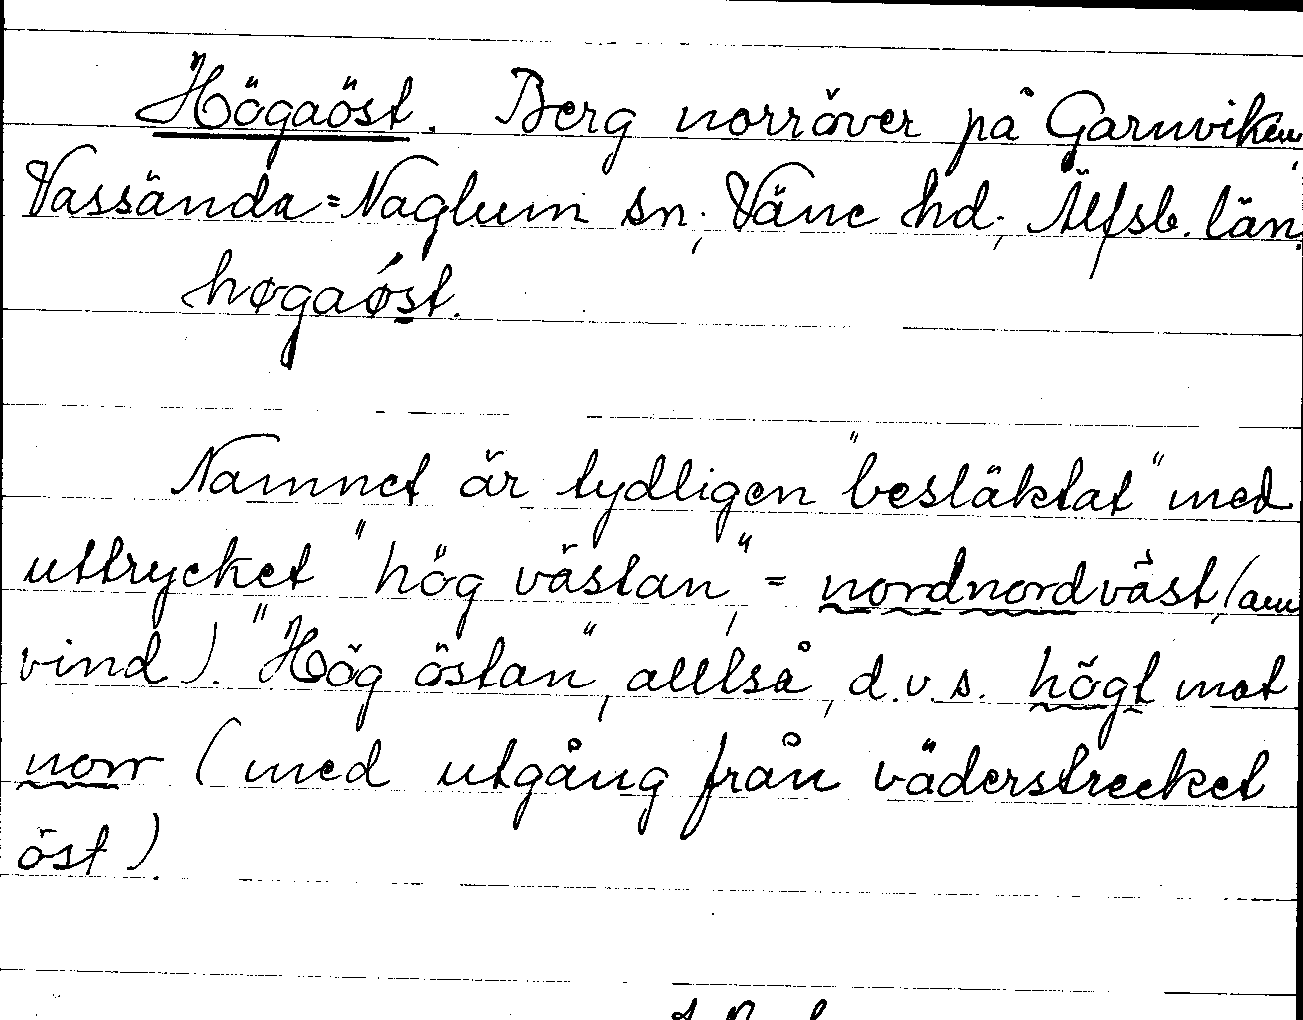 Högaöst. Berg norröver på Garnviken,
Vassända=Naglum sn; Väne hd; Älfsb. län.
høgaǿst.
Namnet är tydligen "besläktat" med
uttrycket "hög västan", = nordnordväst, (om
vind). "Hög östan", alltså, d.v.s. högt mot
norr (med utgång från väderstrecket
öst).